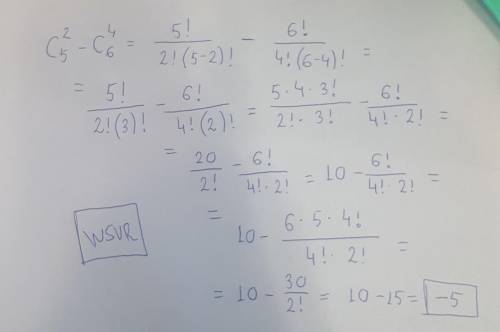 C₅² − C₆⁴ = 5!/2!(5-2)! − 6!/4!(6-4)! =
= 5!/2!(3)! − 6!/4!(2)! = 5·4·3!/2!·3! − 6!/4!·2! =
= 20/2! − 6!/4!·2! = 10 − 6!/4!·2! =
= 10 − 6·5·4!/4!·2! =
WSVR
= 10 − 30/2! = 10 − 15 = −5